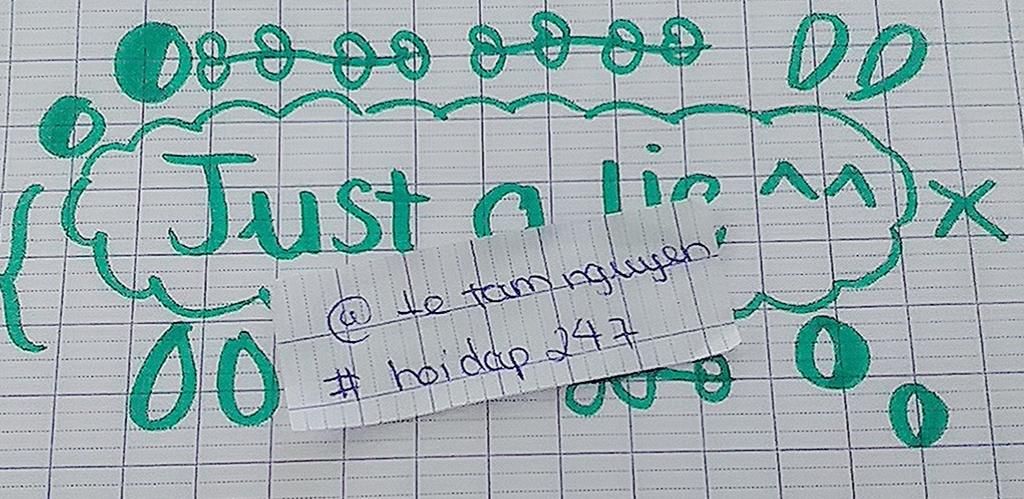 Just a lie ^^
@ le tam nguyen
# hoidap 247